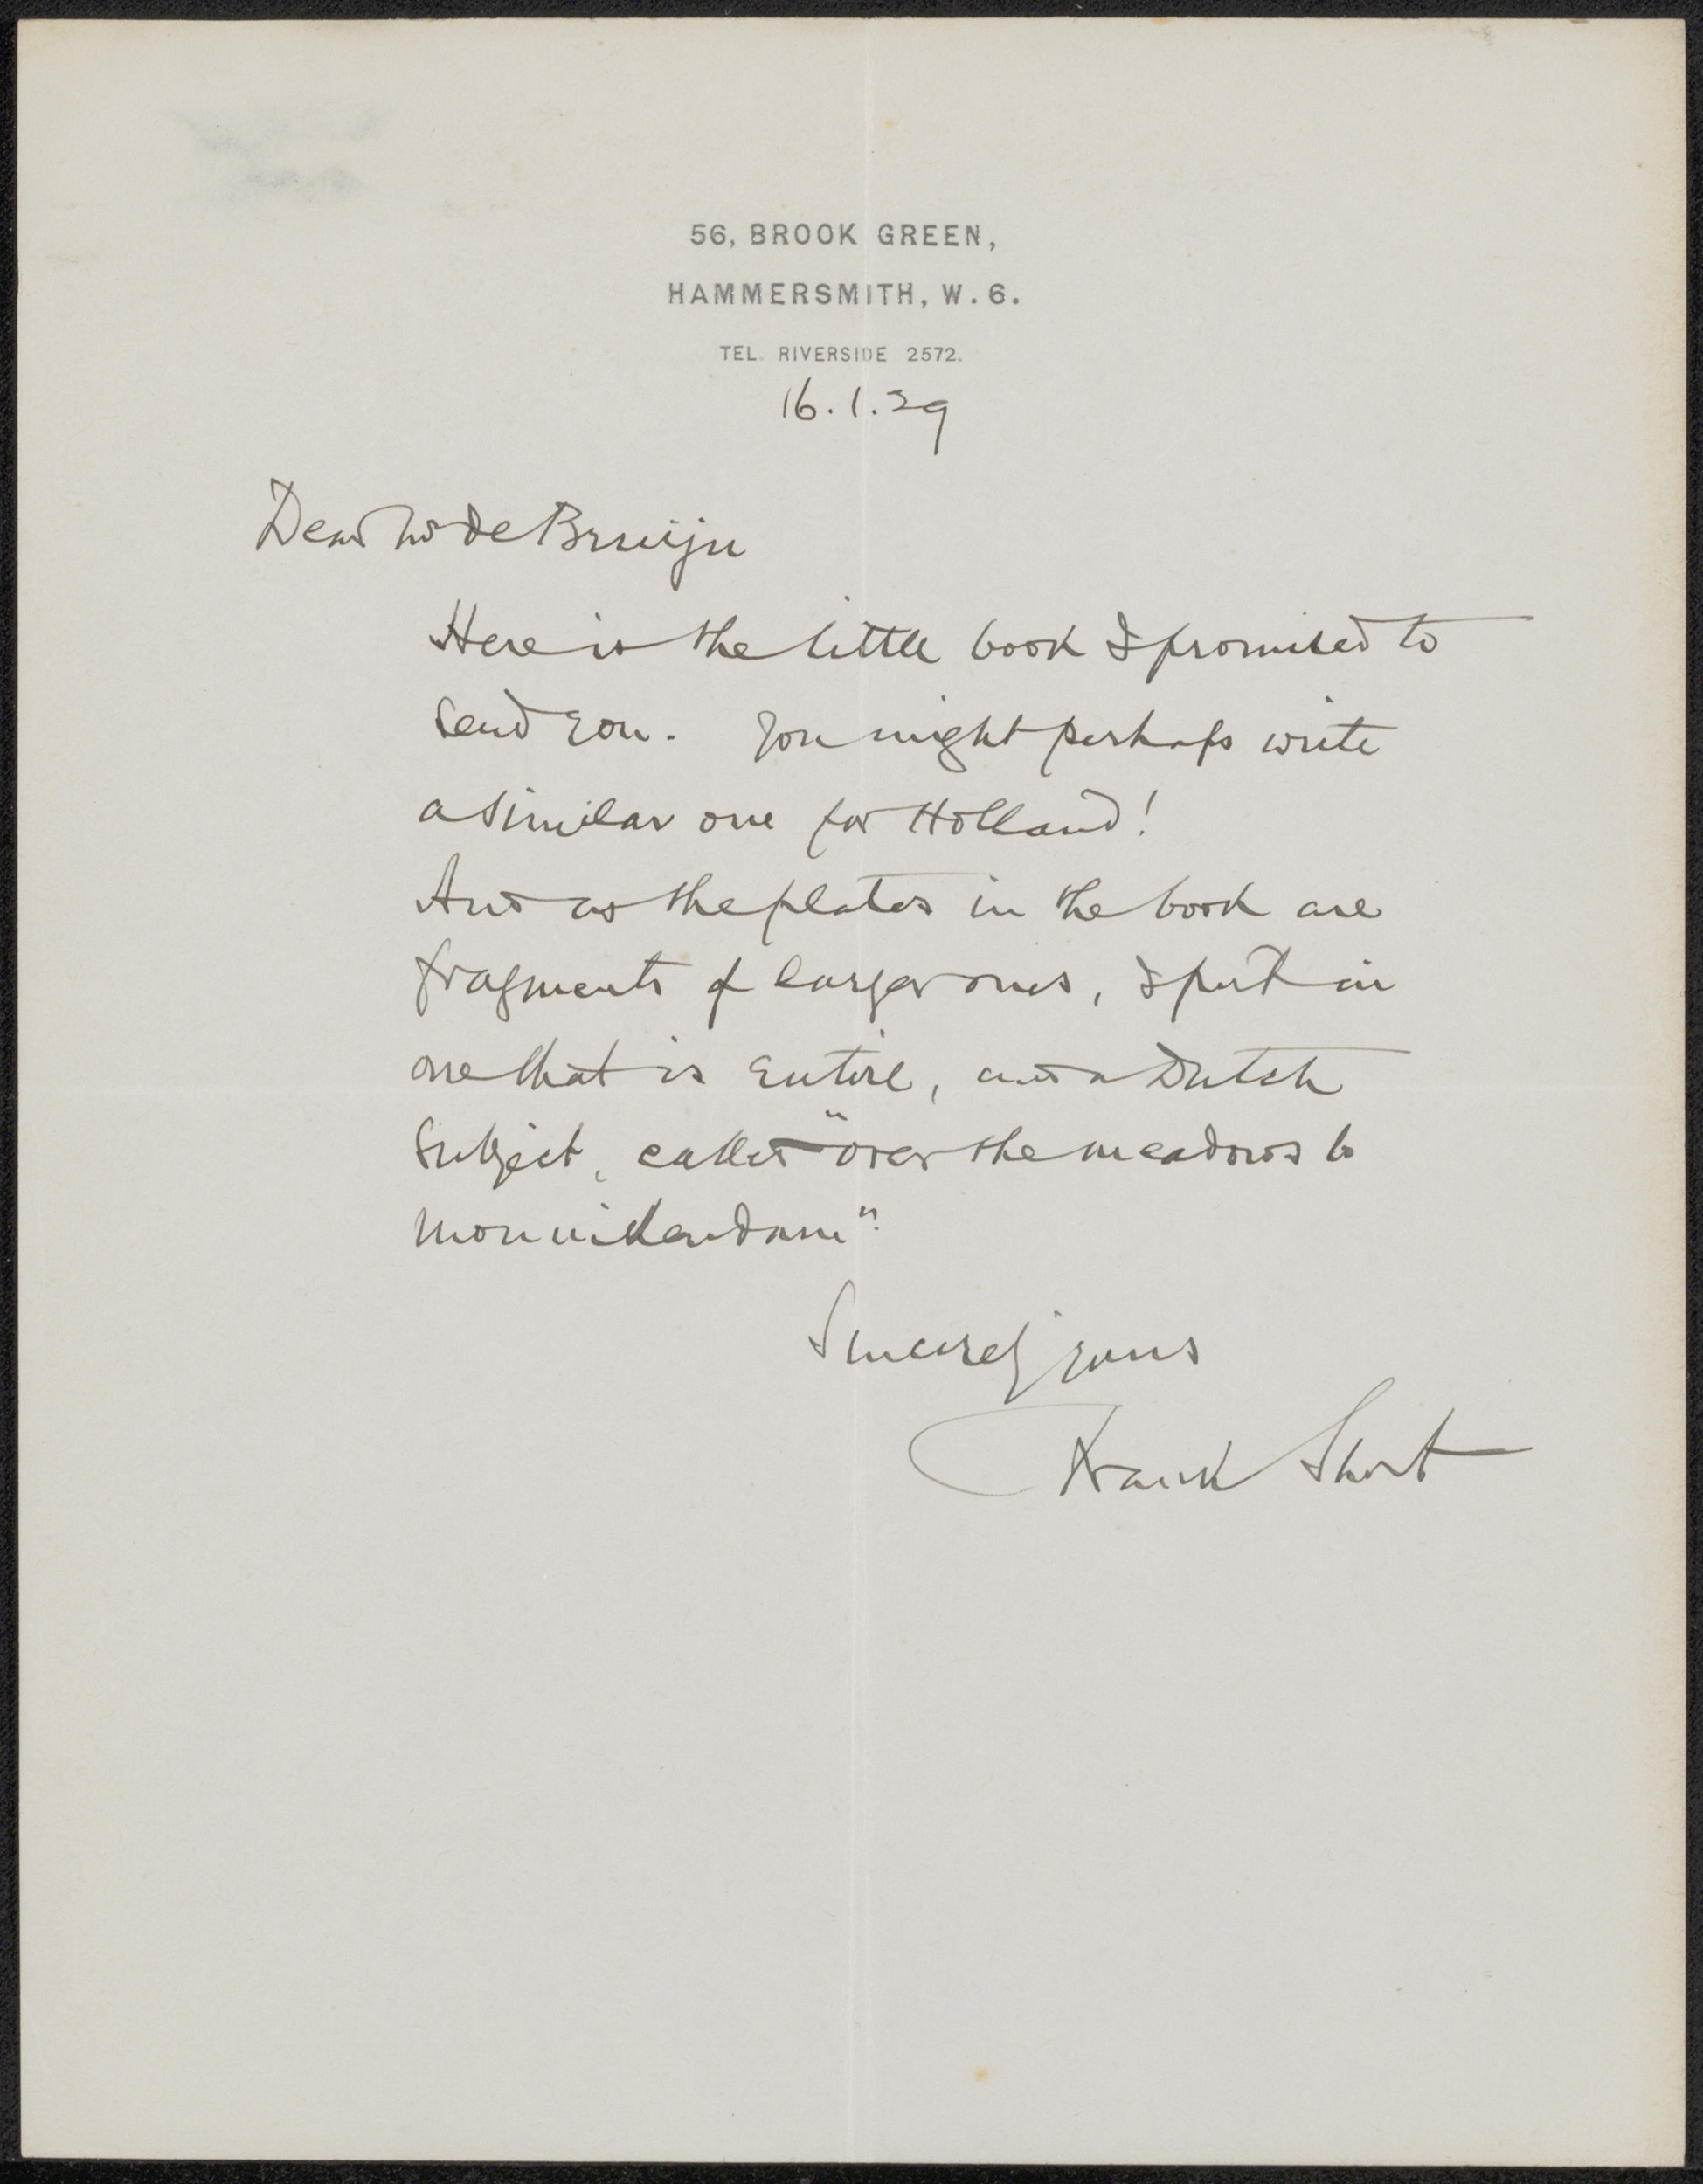 56, BROOK GREEN,
HAMMERSMITH, W. 6.
TEL. RIVERSIDE 2572.
16.1.29
Dear Mr de Bruijn
Here is the little book I promised to
send you. You might perhaps write
a similar one for Holland!
And as the plates in the book are
fragments of larger ones, I put in
one that is entire, and a Dutch
subject, called "over the meadows to
Monnikendam".
Sincerely yours
Frank Short